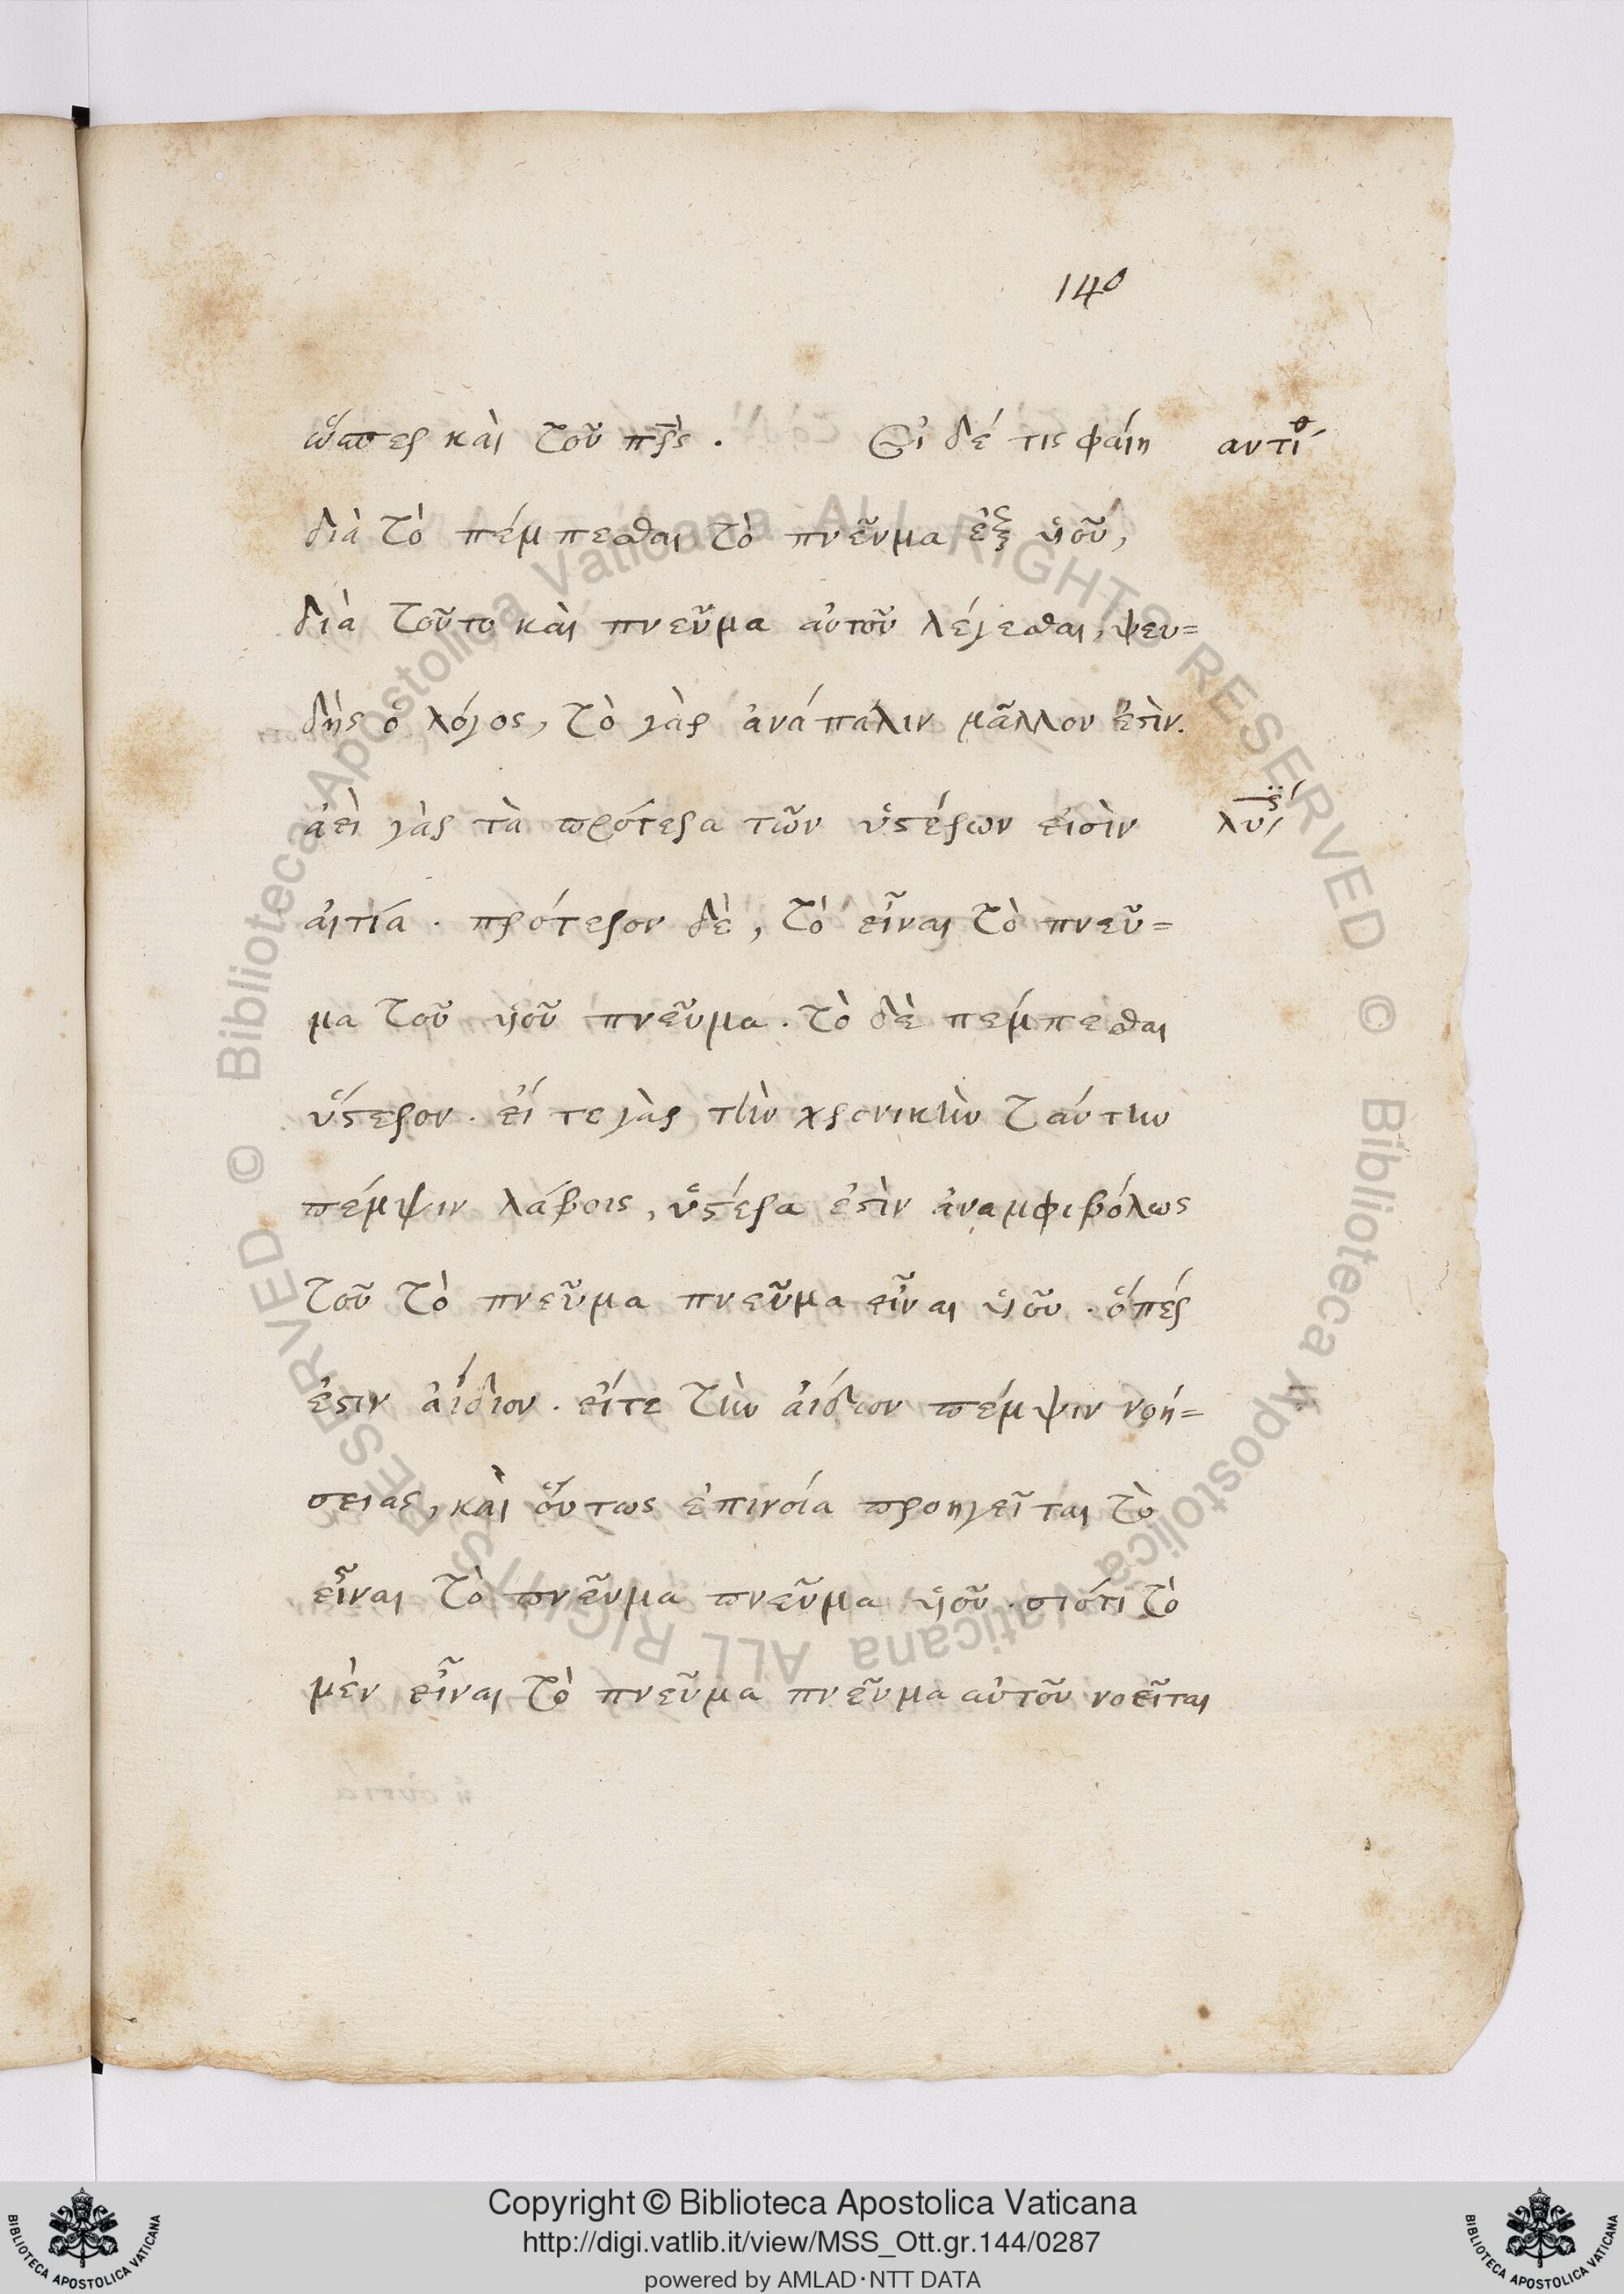 140
ὥσπερ καὶ τοῦ πρς. Εἰ δέ τις φαίη
αντιθ
διὰ τὸ πέμπεσθαι τὸ πνεῦμα ἐξ υἱοῦ,
διὰ τοῦτο καὶ πνεῦμα αὐτοῦ λέγεσθαι, ψευ=
δὴς ὁ λόγος, τὸ γὰρ ἀνάπαλιν μᾶλλον ἐστὶν.
ἀεὶ γὰρ τὰ πρότερα τῶν ὑστέρων εἰσὶν
λυ
αἰτία. πρότερον δὲ, τὸ εἶναι τὸ πνεῦ=
μα τοῦ υἱοῦ πνεῦμα. τὸ δὲ πέμπεσθαι
ὕστερον. εἴ τε γὰρ τὴν χρονικὴν ταύτην
πέμψιν λάβοις, ὑστέρα ἐστὶν ἀναμφιβόλως
τοῦ τὸ πνεῦμα πνεῦμα εἶναι υἱοῦ. ὅπερ
ἐστιν ἀΐδιον. εἴτε τὴν ἀίδιον πέμψιν νοή=
σειας, καὶ οὕτως ἐπινοία προηγεῖται τὸ
εἶναι τὸ πνεῦμα πνεῦμα υἱοῦ. διότι τὸ
μὲν εἶναι τὸ πνεῦμα πνεῦμα αὐτοῦ νοεῖται
© Biblioteca Apostolica Vaticana ALL RIGHTS RESERVED © Biblioteca Apostolica Vaticana ALL RIGHTS RESERVED
Copyright © Biblioteca Apostolica Vaticana
http://digi.vatlib.it/view/MSS_Ott.gr.144/0287
powered by AMLAD·NTT DATA
BIBLIOTECA APOSTOLICA VATICANA
BIBLIOTECA APOSTOLICA VATICANA